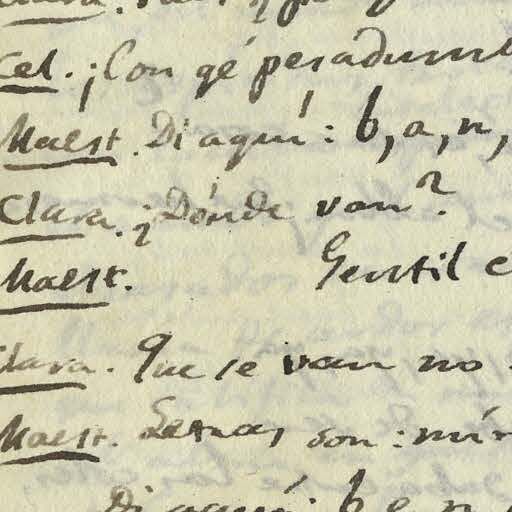 Clara.
Cel. ¡Con qé pesadumb
Maest. Di aquí: b, a, n,
Clara. ¿Dónde van?
Maest. Gentil e
Clara. Que se van no
Maest. Letras son: mír
Di aquí: b e n